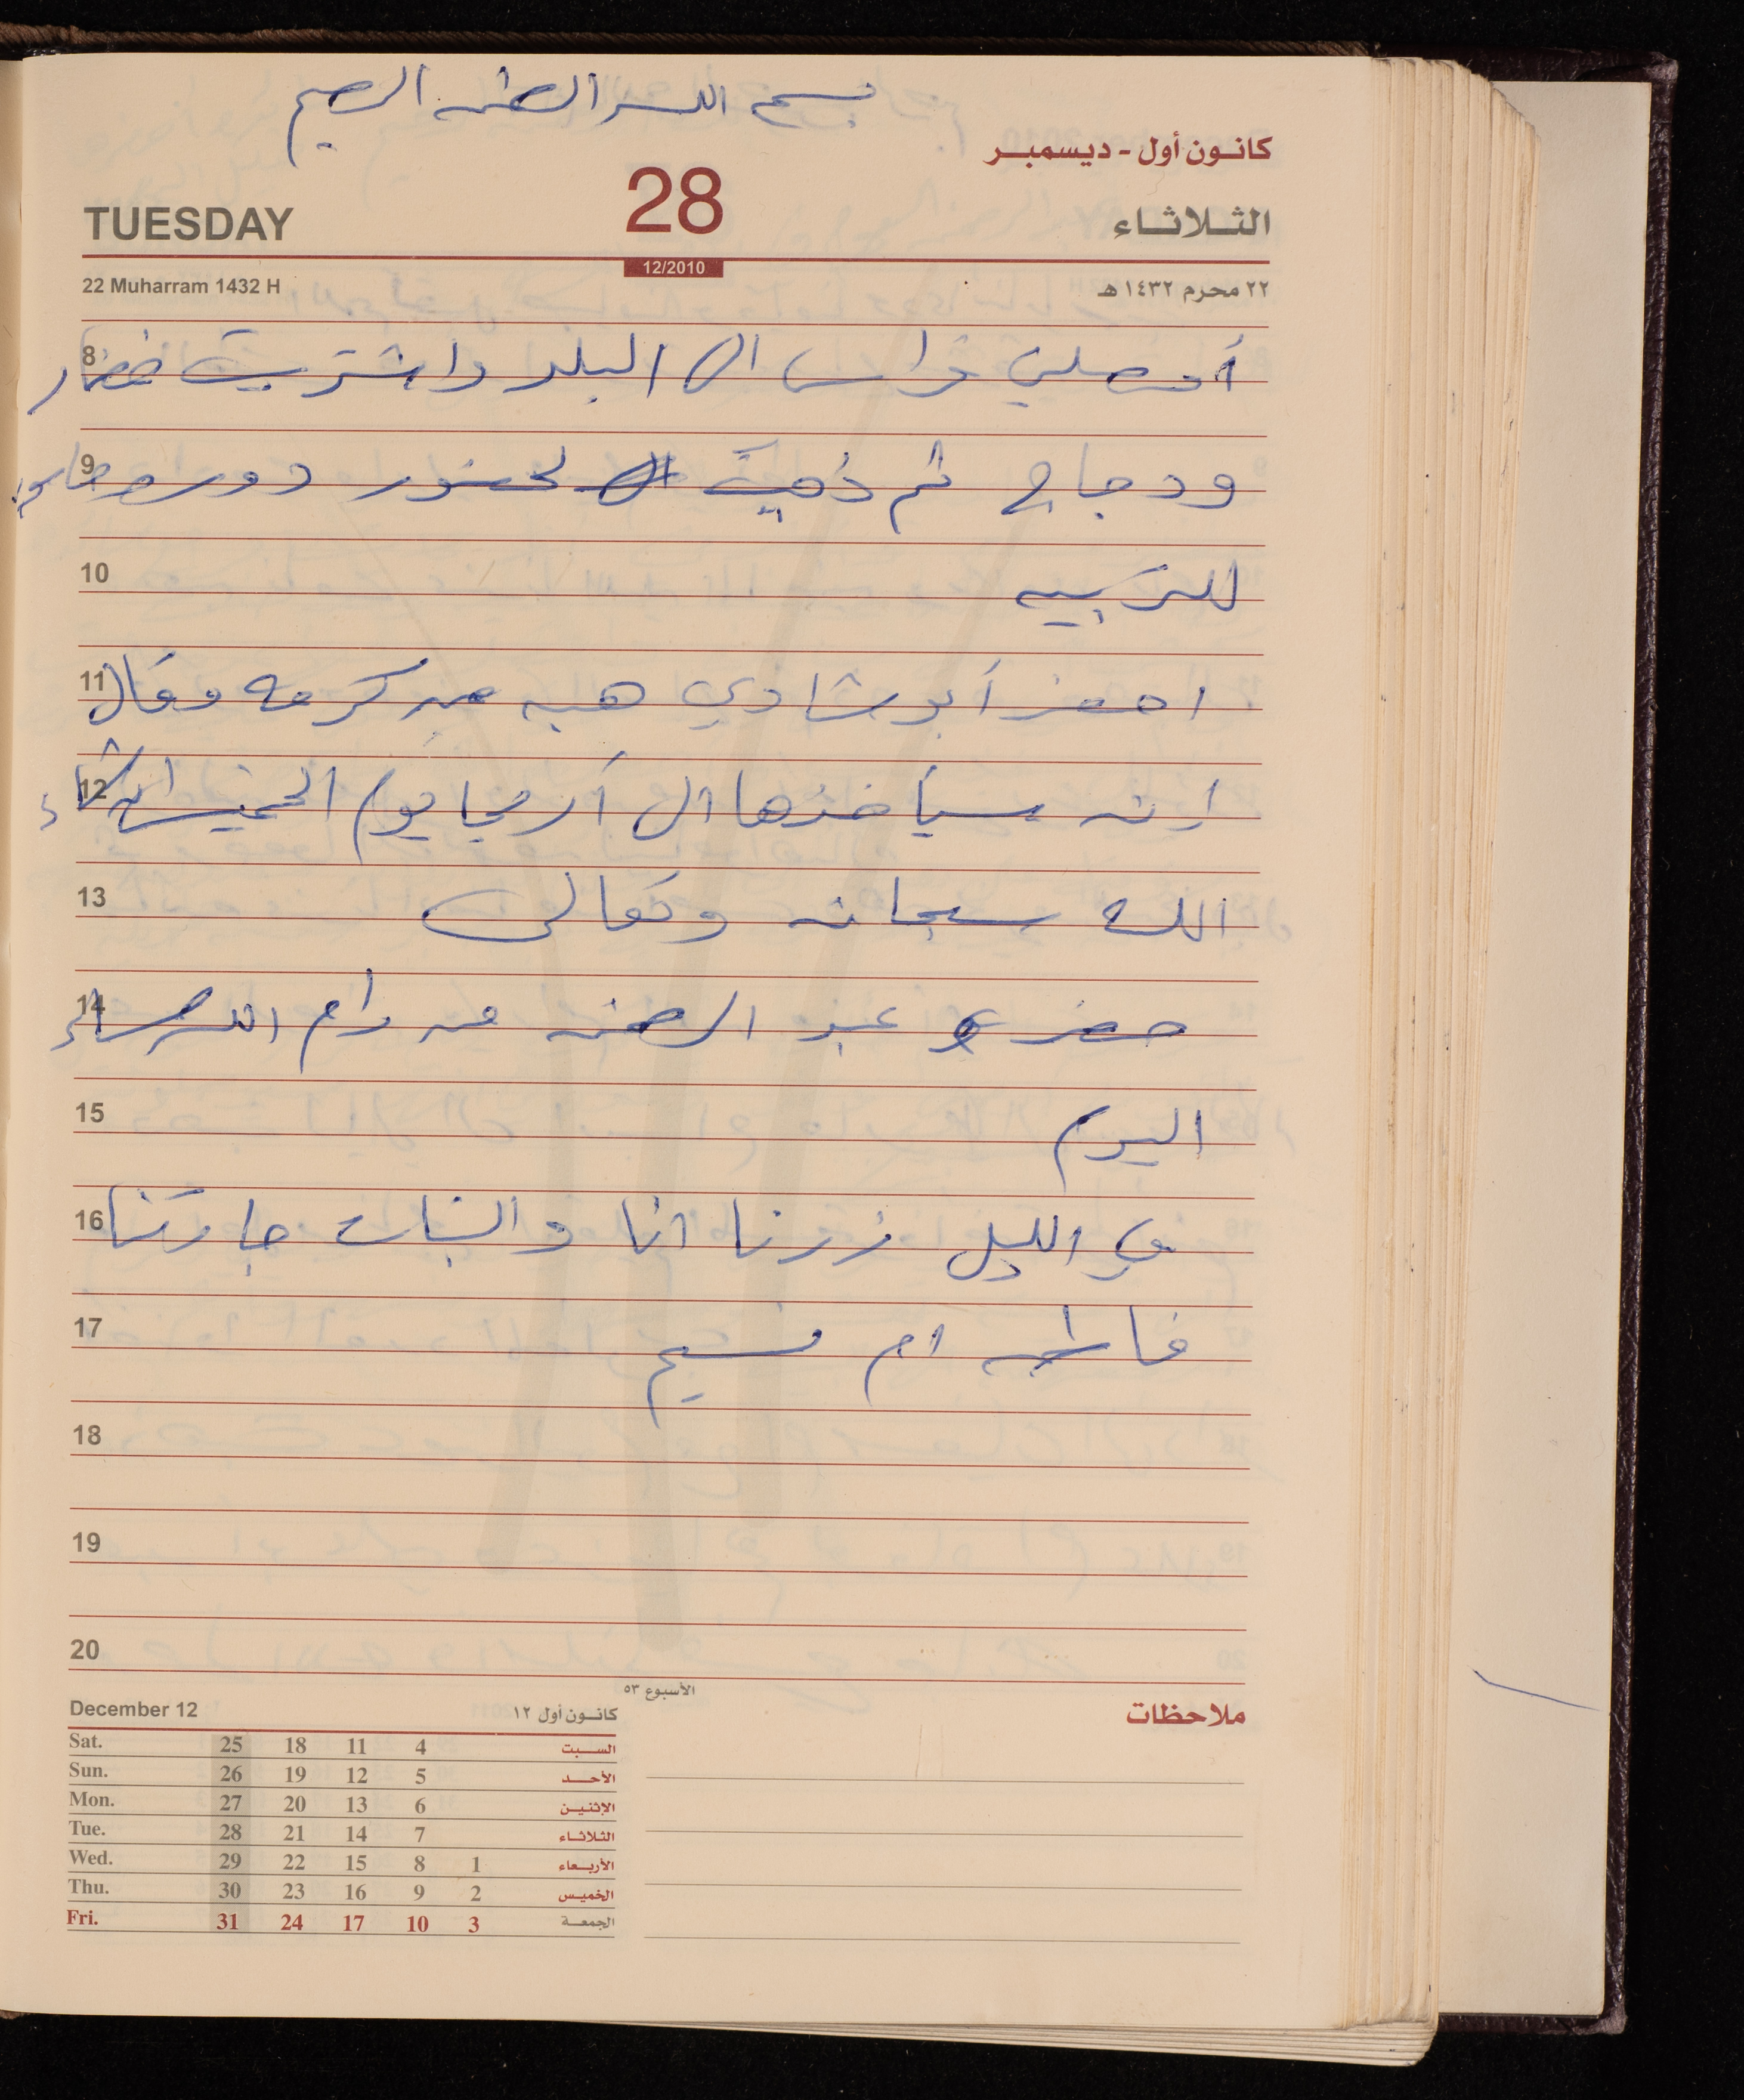 بسم الله الرحمن الرحيم
كانون أول - ديسمبر
TUESDAY 28 الثلاثاء
12/2010
22 Muharram 1432 H ٢٢ محرم ١٤٣٢ هـ
8 أوصلني فراس الى البلد واشتريت خضار
9 ودجاج ثم ذهبت لحضور دورة
10 للتربيه
11 احضر أبو شادي هبه من كرمه وقال
12 انه سيأخذها الى أريحا يوم الخميس ان شاء
13 الله سبحانه وتعالى
14 حضر عبد الرحمن من رام الله مساء
15 اليوم
16 في الليل زرنا انا والبنات جارتنا
17 فاطمه ام نسيم
18
19
20
الأسبوع ٥٣
December 12 كانون أول ١٢
ملاحظات
Sat. 25 18 11 4 السبت
Sun. 26 19 12 5 الأحد
Mon. 27 20 13 6 الإثنين
Tue. 28 21 14 7 الثلاثاء
Wed. 29 22 15 8 1 الأربعاء
Thu. 30 23 16 9 2 الخميس
Fri. 31 24 17 10 3 الجمعة